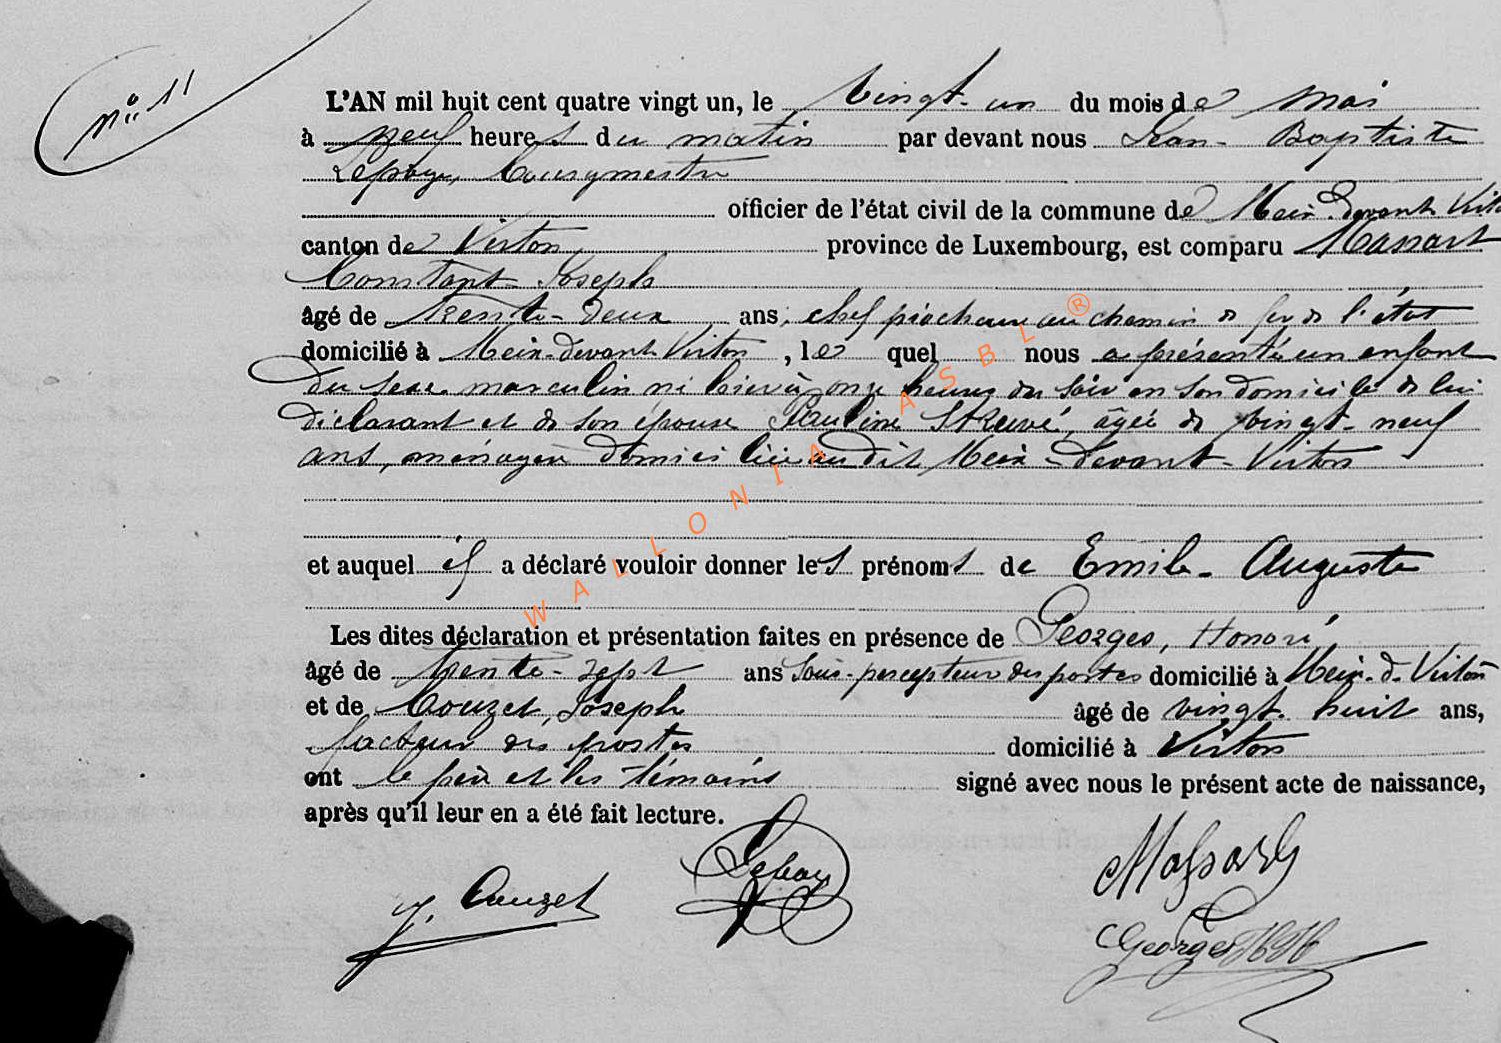 n° 11
L'AN mil huit cent quatre vingt un, le vingt-un du mois de Mai
à neuf heures du matin par devant nous Jean-Baptiste
Lepage, Bourgmestre
officier de l'état civil de la commune de Meix-devant Virton
canton de Virton province de Luxembourg, est comparu Massart
Constant-Joseph
âgé de trente-deux ans, chef piocheur au chemin de fer de l'état
domicilié à Meix-devant Virton, lequel nous a présenté un enfant
du sexe masculin né hier à onze heures du soir en son domicile de lui
déclarant et de son épouse Pauline Struvé, âgée de vingt-neuf
ans, ménagère domiciliée au dit Meix-devant-Virton
et auquel il a déclaré vouloir donner les prénoms de Emile-Auguste
Les dites déclaration et présentation faites en présence de Georges, Honoré,
âgé de trente-sept ans sous-percepteur des postes domicilié à Meix-d-Virton
et de Couzet, Joseph âgé de vingt-huit ans,
facteur des postes domicilié à Virton
ont le père et les témoins signé avec nous le présent acte de naissance,
après qu'il leur en a été fait lecture.
J. Couzet Lepage Massart
Georges
WALLONIA ASBL ®